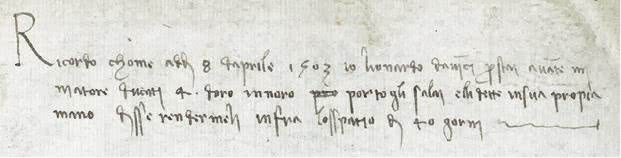 Ricordo chome addi 8 daprile 1503 io lionardo davinci prestai avante mi
niatore ducati 4 doro innoro portogli salai elli dette insua propria
mano disse rendermeli infra losspatio di 40 gorni